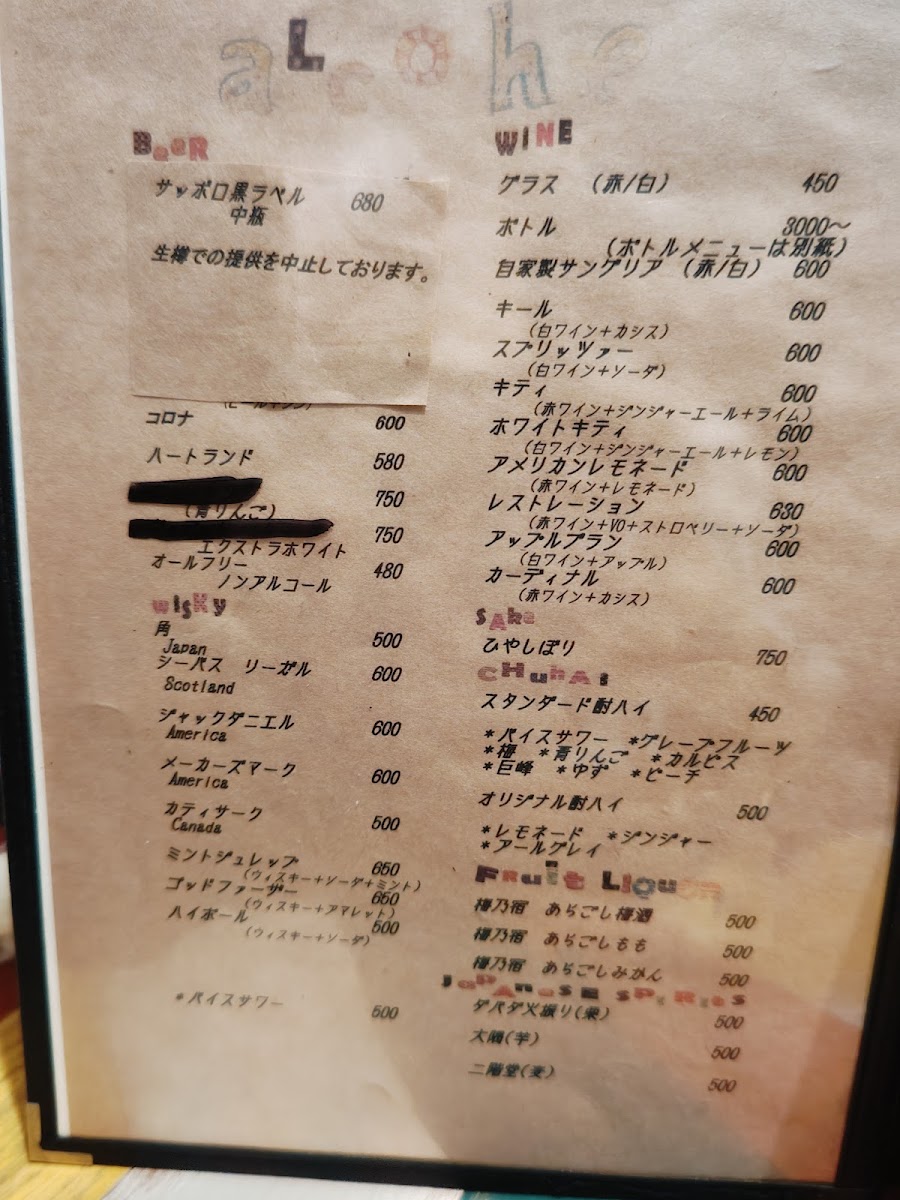 aLcohol
BeeR
サッポロ黒ラベル 680
中瓶
生樽での提供を中止しております。
コロナ 600
ハートランド 580
750
(青りんご)
750
エクストラホワイト
オールフリー 480
ノンアルコール
wisKy
角 500
Japan
シーバス リーガル 600
Scotland
ジャックダニエル 600
America
メーカーズマーク 600
America
カティサーク 500
Canada
ミントジュレップ 650
(ウィスキー+ソーダ+ミント)
ゴッドファーザー 650
(ウィスキー+アマレット)
ハイボール 500
(ウィスキー+ソーダ)
*バイスサワー 500
WINE
グラス (赤/白) 450
ボトル 3000～
(ボトルメニューは別紙)
自家製サングリア (赤/白) 600
キール 600
(白ワイン+カシス)
スプリッツァー 600
(白ワイン+ソーダ)
キティ 600
(赤ワイン+ジンジャーエール+ライム)
ホワイトキティ 600
(白ワイン+ジンジャーエール+レモン)
アメリカンレモネード 600
(赤ワイン+レモネード)
レストレーション 630
(赤ワイン+VO+ストロベリー+ソーダ)
アップルプラン 600
(白ワイン+アップル)
カーディナル 600
(赤ワイン+カシス)
SAke
ひやしぼり 750
CHuhAi
スタンダード酎ハイ 450
*バイスサワー *グレープフルーツ
*梅 *青りんご *カルピス
*巨峰 *ゆず *ピーチ
オリジナル酎ハイ 500
*レモネード *ジンジャー
*アールグレイ
FRuit LiquoR
梅乃宿 あらごし梅酒 500
梅乃宿 あらごしもも 500
梅乃宿 あらごしみかん 500
JaPAneSE sPiRieS
ダバダ火振り(栗) 500
大隅(芋) 500
二階堂(麦) 500